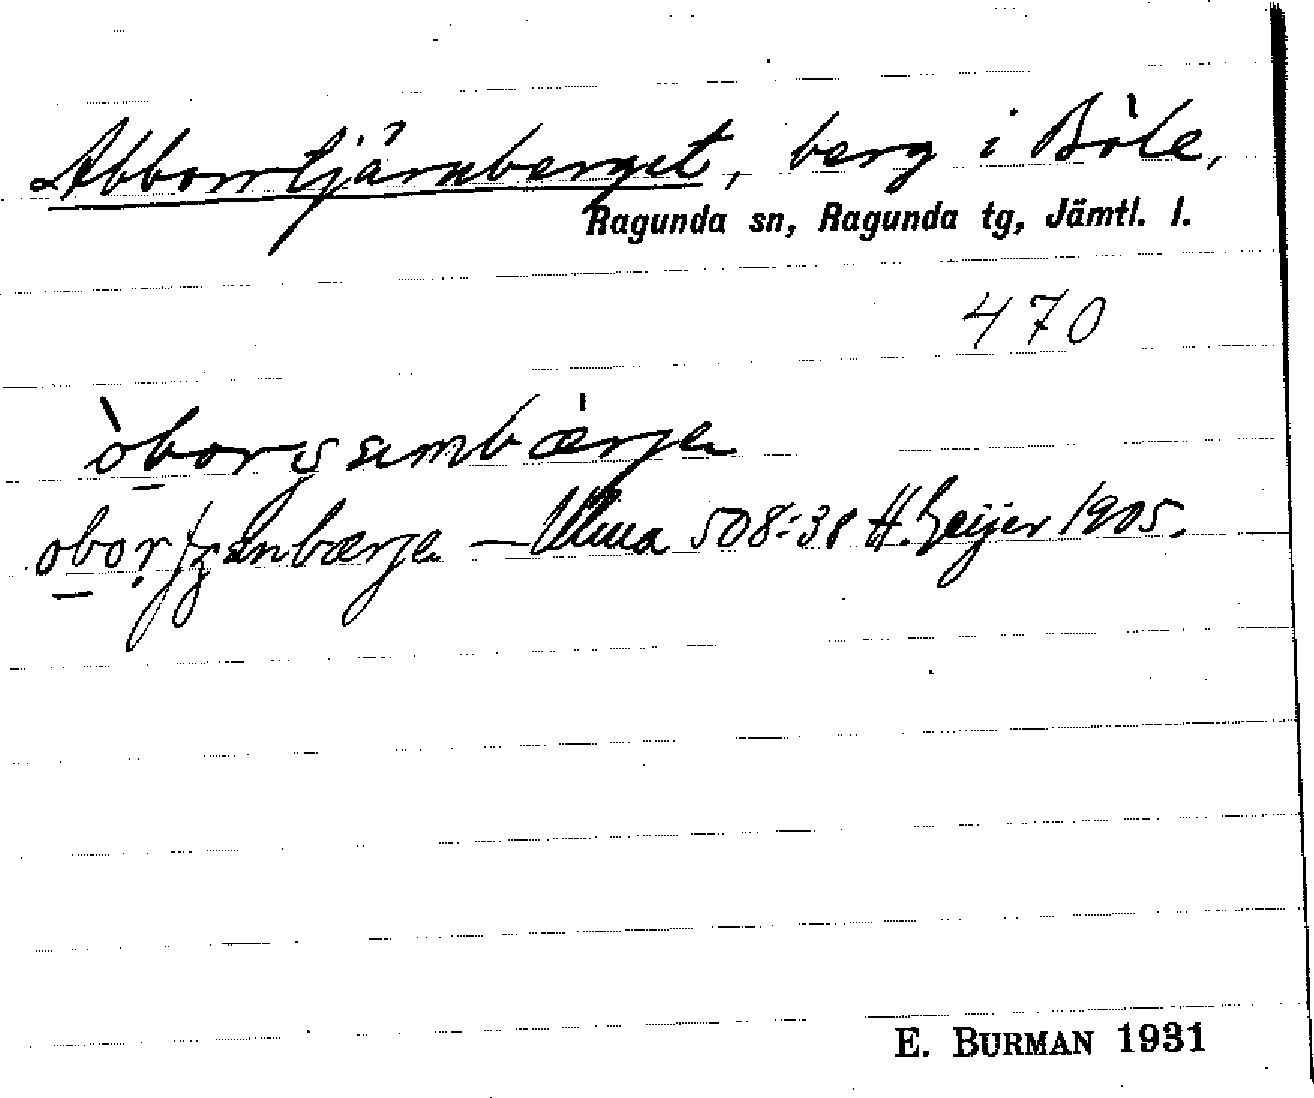 Abborrtjärnberget, berg i Böle,
Ragunda sn, Ragunda tg, Jämtl. l.
470
— Ulma 508:38 H. Geijer 1905.
E. BURMAN 1931